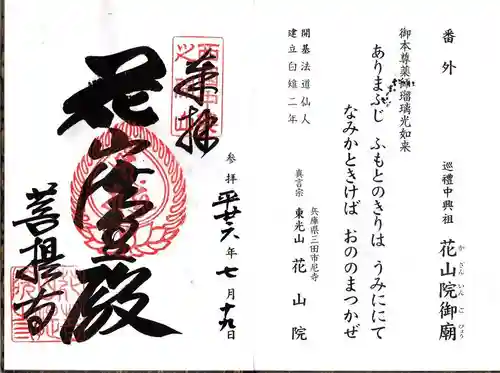 番外
巡禮中興祖
花山院御廟
かざんいんごびょう
御本尊薬師瑠璃光如来
ありまふじ ふもとのきりは うみににて
なみかときけば おののまつかぜ
開基法道仙人
建立白雉二年
兵庫県三田市尼寺
真言宗 東光山 花山院
奉拝
参拝 平廿六年七月十九日
花山法皇殿
菩提寺